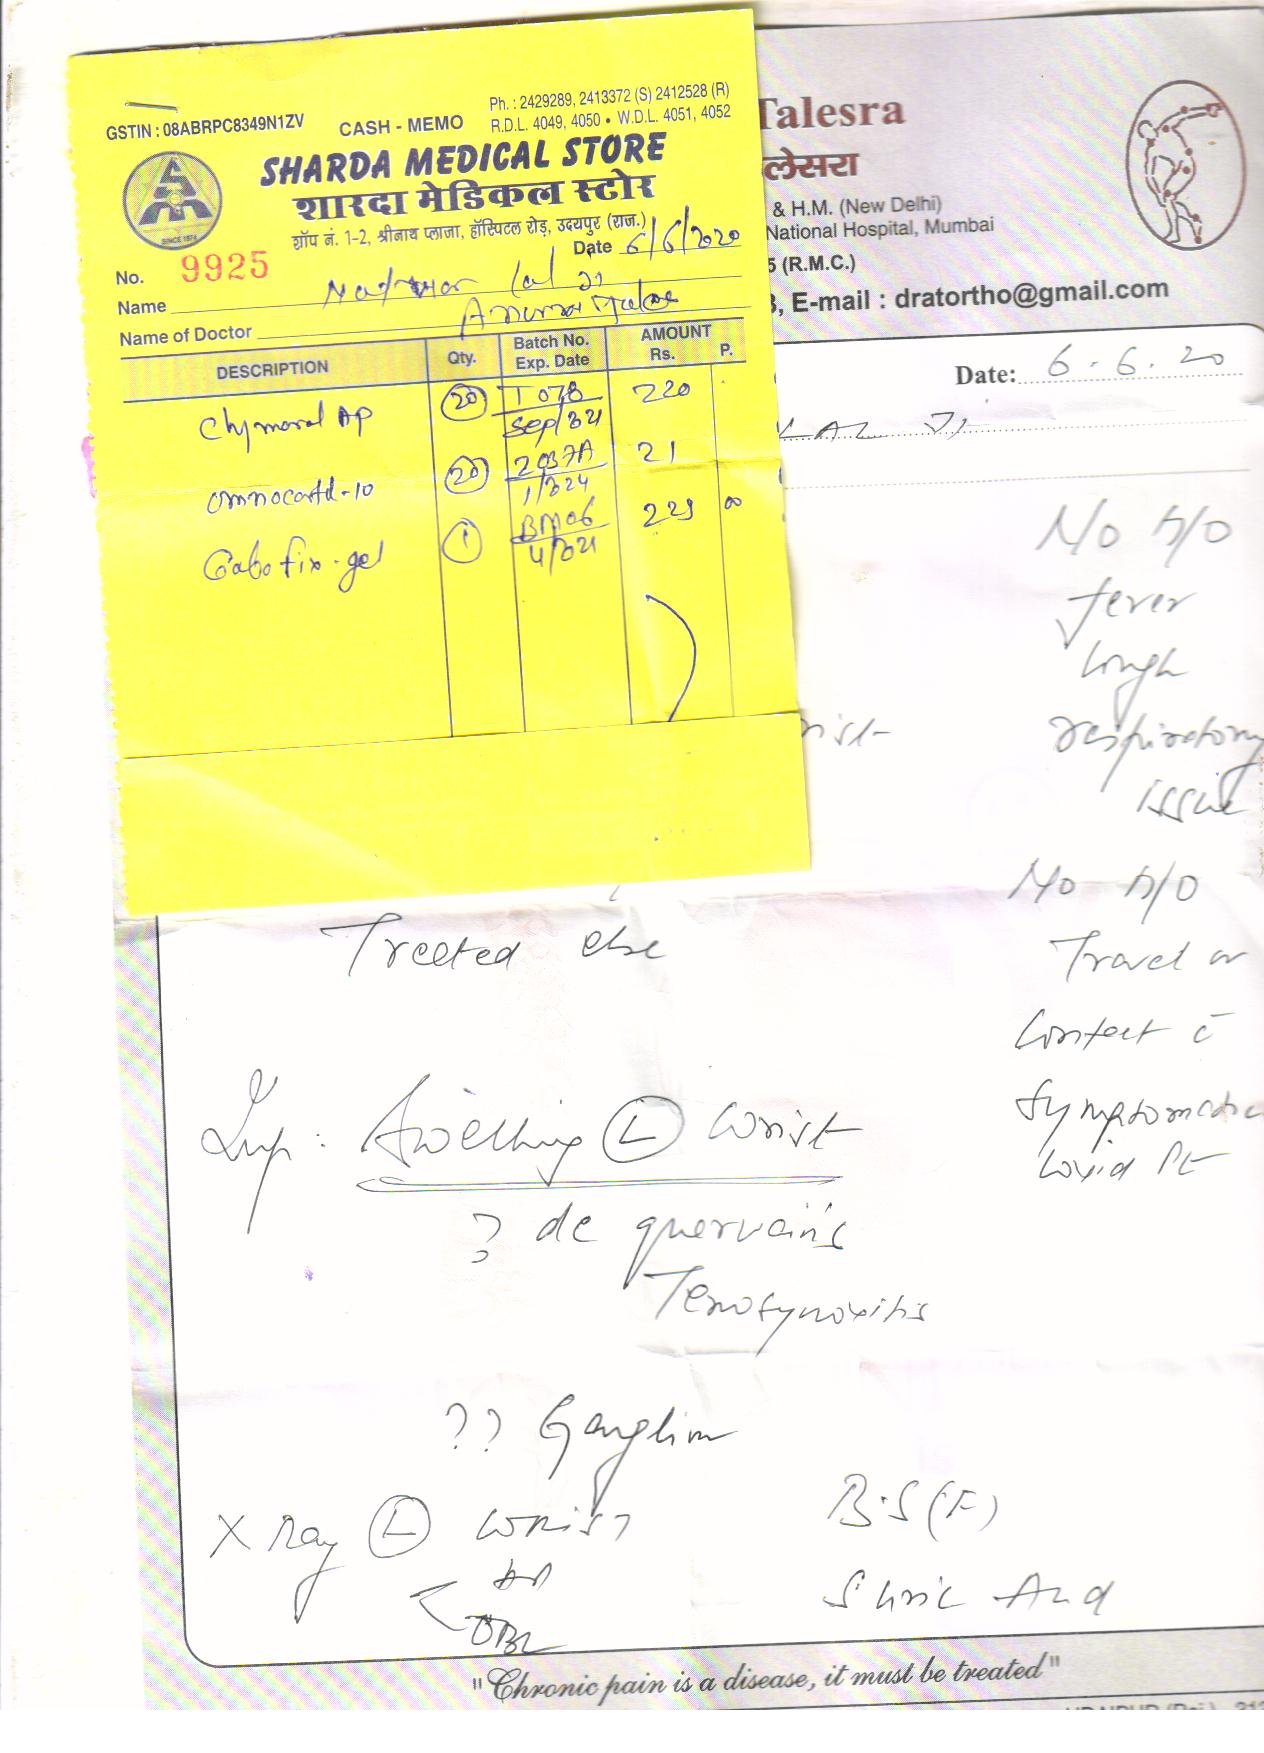 GSTIN : 08ABRPC8349N1ZV
CASH - MEMO
Ph. : 2429289, 2413372 (S) 2412528 (R)
R.D.L. 4049, 4050 • W.D.L. 4051, 4052
SHARDA MEDICAL STORE
शारदा मेडिकल स्टोर
शॉप नं. 1-2, श्रीनाथ प्लाजा, हॉस्पिटल रोड़, उदयपुर (राज.)
SINCE 1974
No. 9925
Date 6/6/2020
Name
Name of Doctor
DESCRIPTION Qty. Batch No. Exp. Date AMOUNT Rs. P.
Chymoral AP 20 T 078 Sep/21 220
omnacortd-10 20 2037A 1/2024 21
Gabofix-gel 1 BM06 4/2021 229 00
Talesra
लेसरा
& H.M. (New Delhi)
National Hospital, Mumbai
5 (R.M.C.)
3, E-mail : dratortho@gmail.com
Date: 6.6.20
LAL JI
No h/o
fever
Cough
respiratory
issue
No h/o
Travel or
Contact c̄
Symptomatic
Covid Pt
rist
Treated else
Imp : Swelling (L) wrist
? de quervain's
Tenosynovitis
?? Ganglion
X Ray (L) wrist
AP
OBL
B.S(F)
S Uric Acid
"Chronic pain is a disease, it must be treated"
UDAIPUR (Raj.)